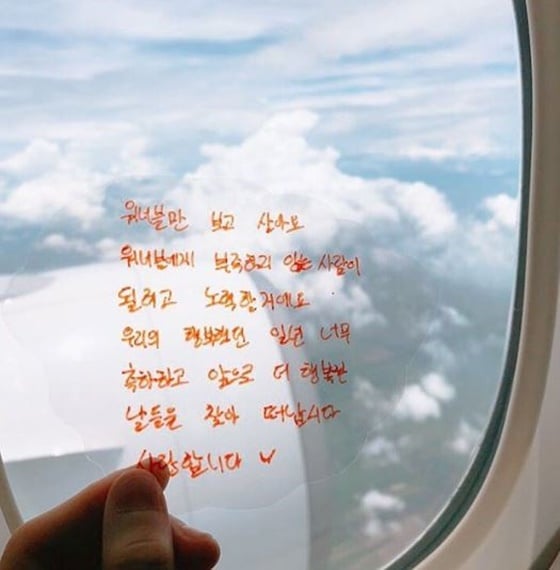 워너블만 보고 살아요
워너블에게 부족하지 않은 사람이
되려고 노력할거에요
우리의 행복했던 일년 너무
축하하고 앞으로 더 행복한
날들을 찾아 떠납시다
사랑합니다